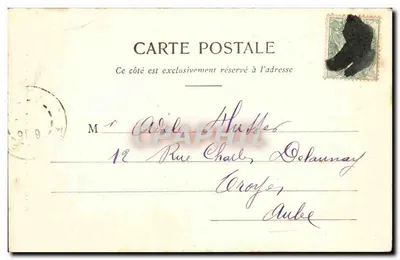 CARTE POSTALE
Ce côté est exclusivement réservé à l'adresse
Mr Adole
12 Rue Charles Delaunay
Troyes
Aube